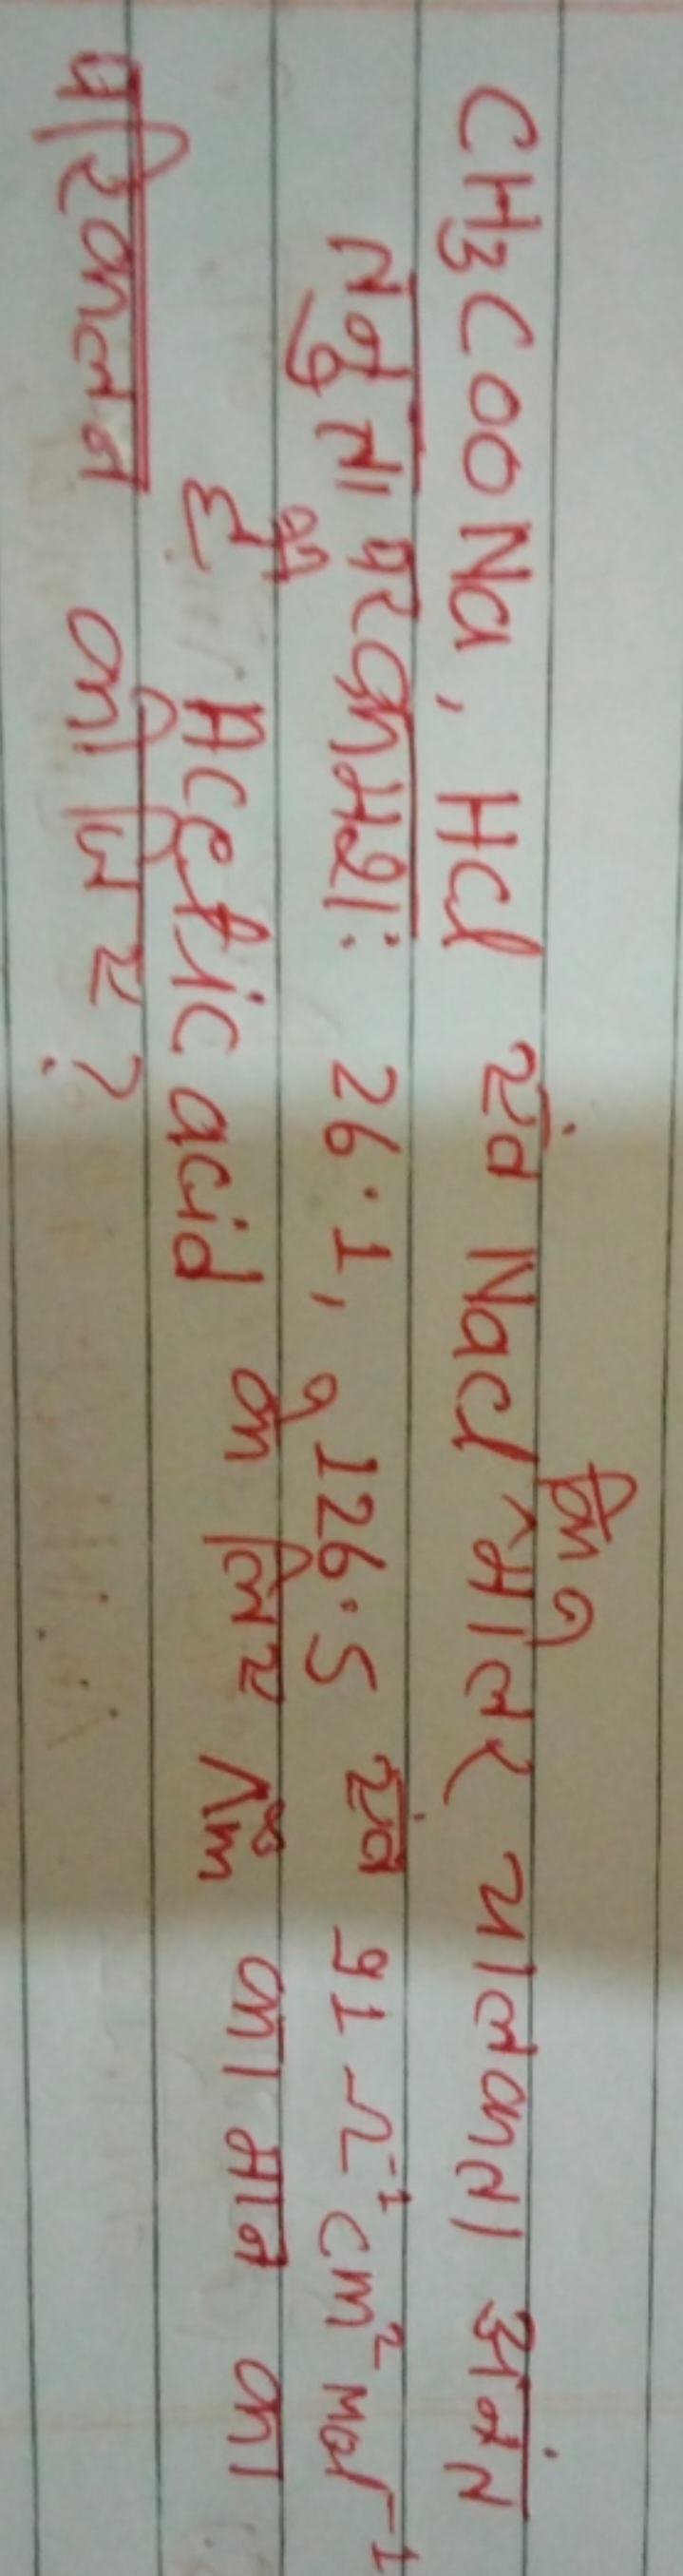 CH3COONa, HCl एवं NaCl की मोलर चालकता अनंत
तनुता पर क्रमशः 26.1, 126.5 एवं 91 Ω⁻¹ cm² mol⁻¹
है Acetic acid के लिये Λ∞m का मान का
परिकलन कीजिये?